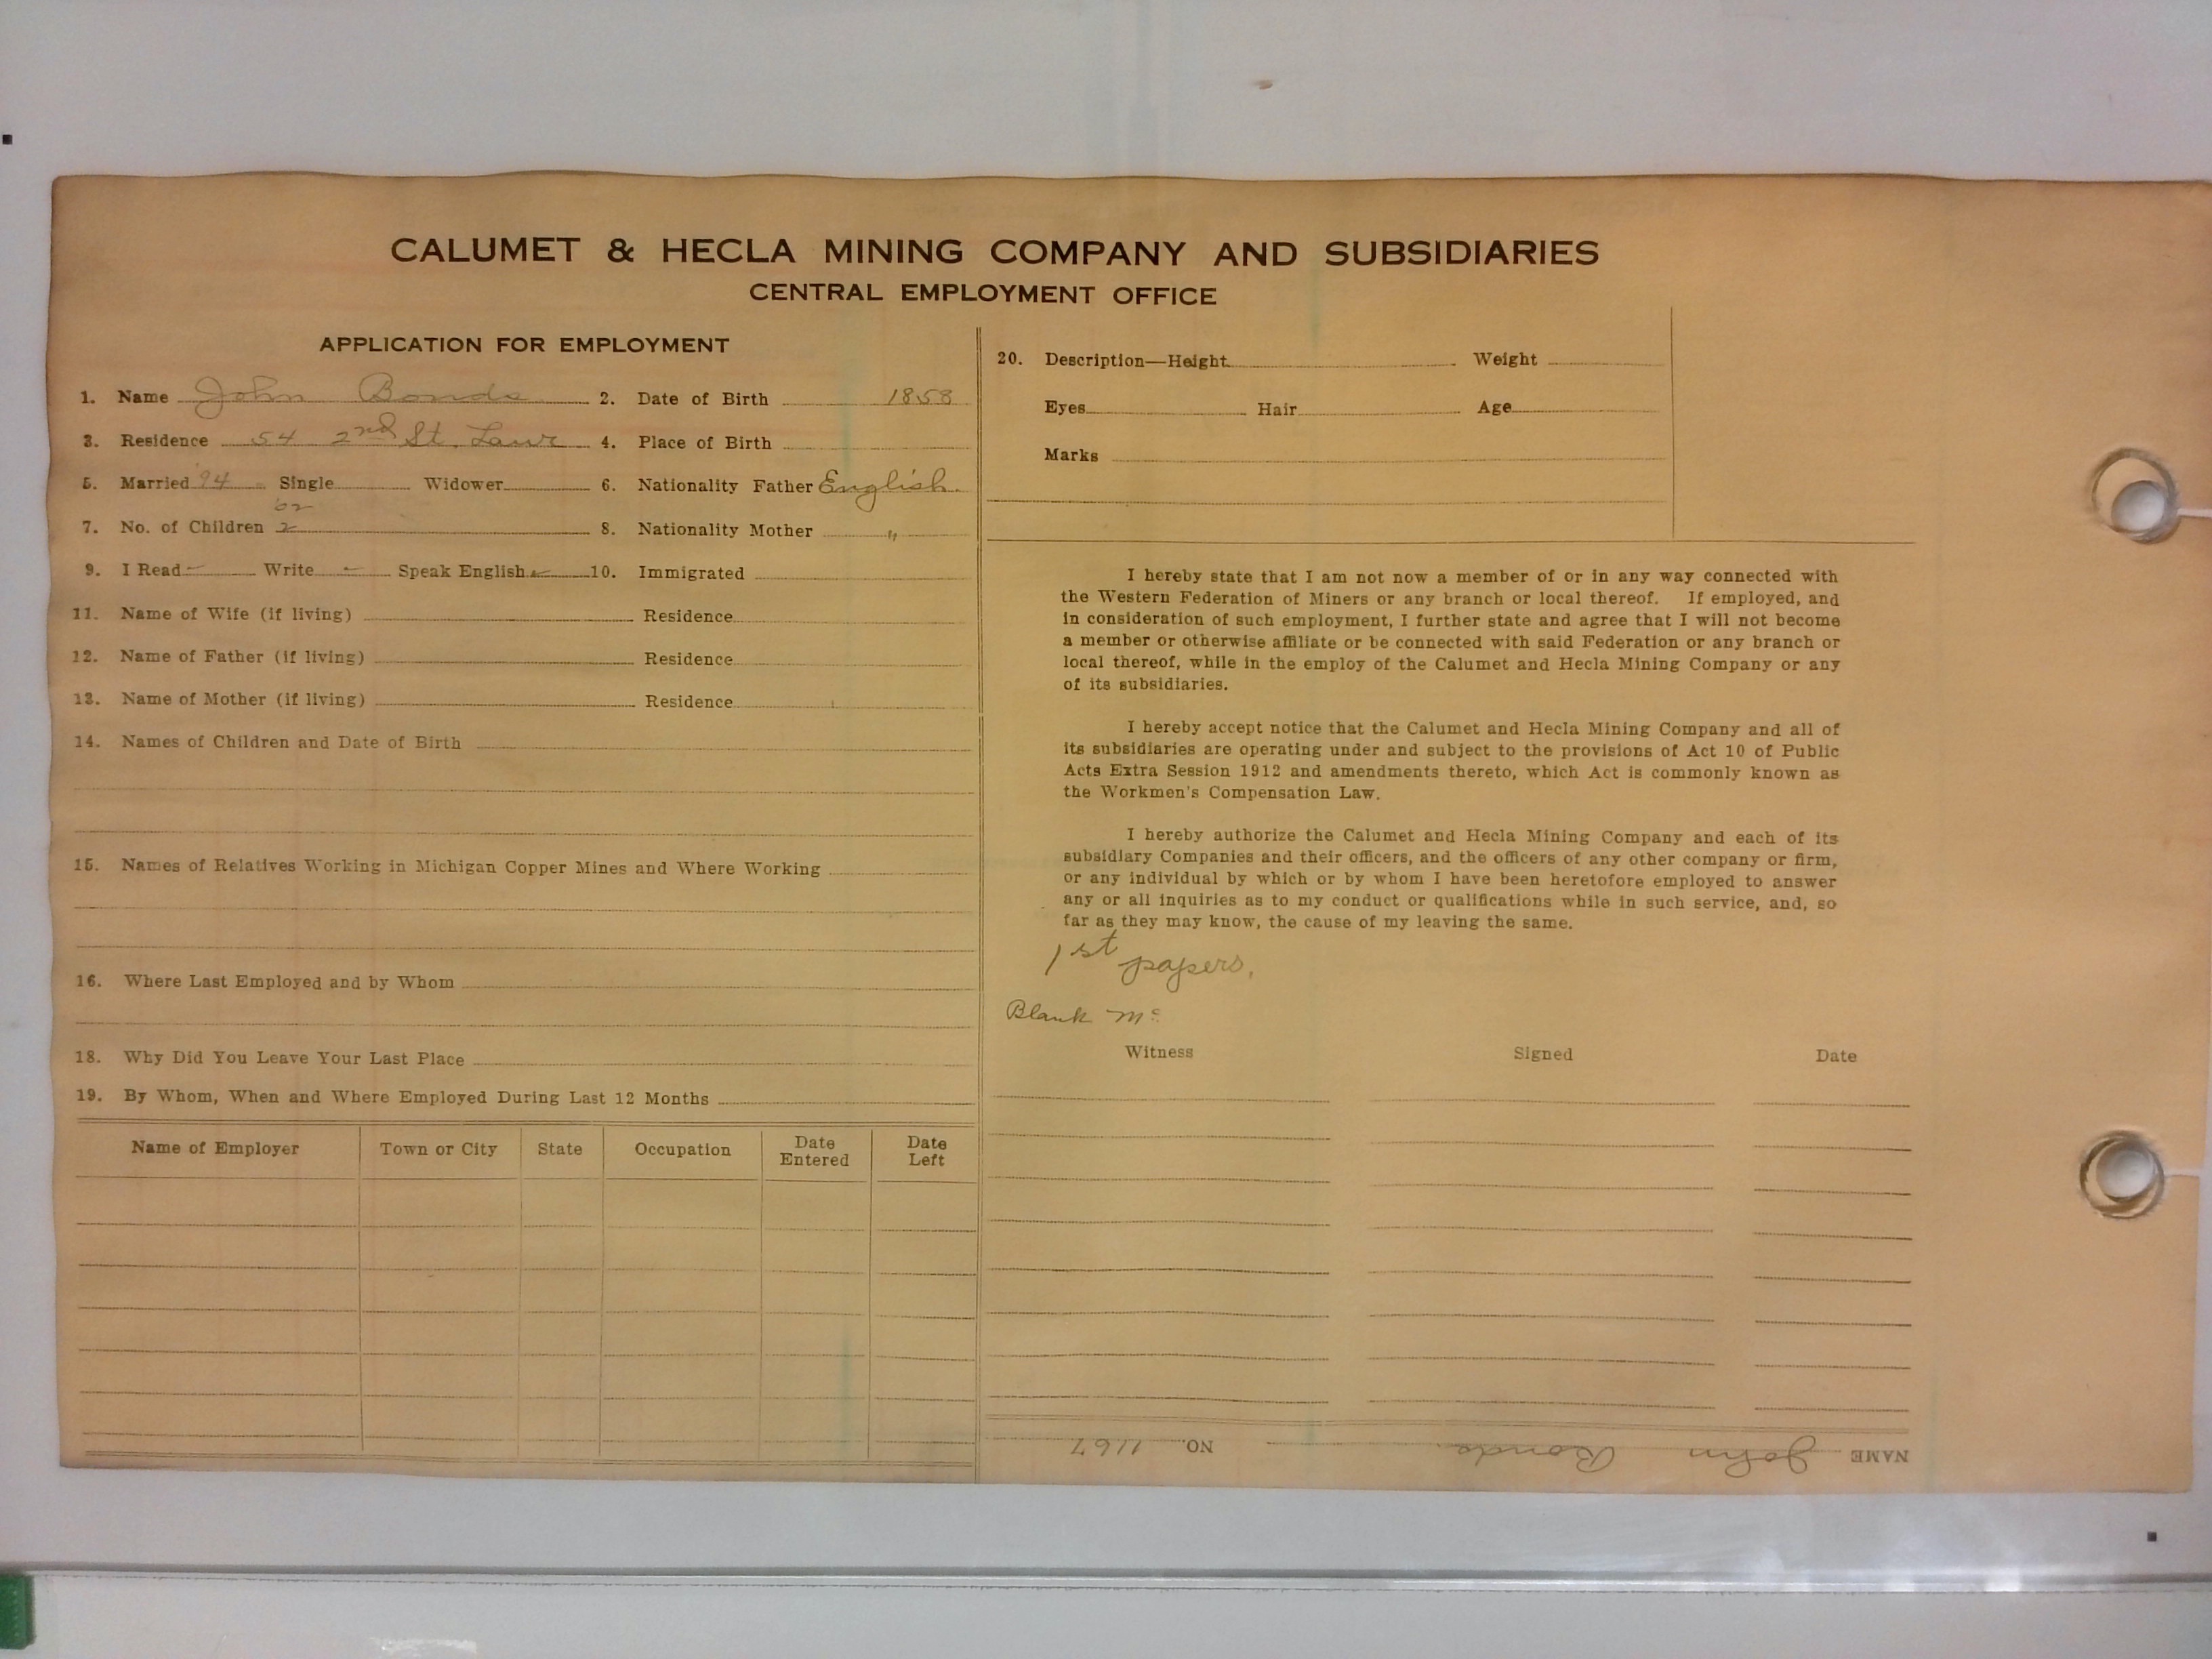 CALUMET & HECLA MINING COMPANY AND SUBSIDIARIES
CENTRAL EMPLOYMENT OFFICE
APPLICATION FOR EMPLOYMENT
1. Name John Bonds 2. Date of Birth 1858
3. Residence 54 2nd St. Laur 4. Place of Birth
5. Married '94 Single Widower 6. Nationality Father English.
'02
7. No. of Children 2 8. Nationality Mother "
9. I Read ✓ Write ✓ Speak English ✓ 10. Immigrated
11. Name of Wife (if living) Residence
12. Name of Father (if living) Residence
13. Name of Mother (if living) Residence
14. Names of Children and Date of Birth
15. Names of Relatives Working in Michigan Copper Mines and Where Working
16. Where Last Employed and by Whom
18. Why Did You Leave Your Last Place
19. By Whom, When and Where Employed During Last 12 Months
Name of Employer Town or City State Occupation Date Entered Date Left
20. Description—Height Weight
Eyes Hair Age
Marks
I hereby state that I am not now a member of or in any way connected with
the Western Federation of Miners or any branch or local thereof. If employed, and
in consideration of such employment, I further state and agree that I will not become
a member or otherwise affiliate or be connected with said Federation or any branch or
local thereof, while in the employ of the Calumet and Hecla Mining Company or any
of its subsidiaries.
I hereby accept notice that the Calumet and Hecla Mining Company and all of
its subsidiaries are operating under and subject to the provisions of Act 10 of Public
Acts Extra Session 1912 and amendments thereto, which Act is commonly known as
the Workmen's Compensation Law.
I hereby authorize the Calumet and Hecla Mining Company and each of its
subsidiary Companies and their officers, and the officers of any other company or firm,
or any individual by which or by whom I have been heretofore employed to answer
any or all inquiries as to my conduct or qualifications while in such service, and, so
far as they may know, the cause of my leaving the same.
1st papers.
Blank Mc
Witness Signed Date
NAME John Bonds NO. 1167